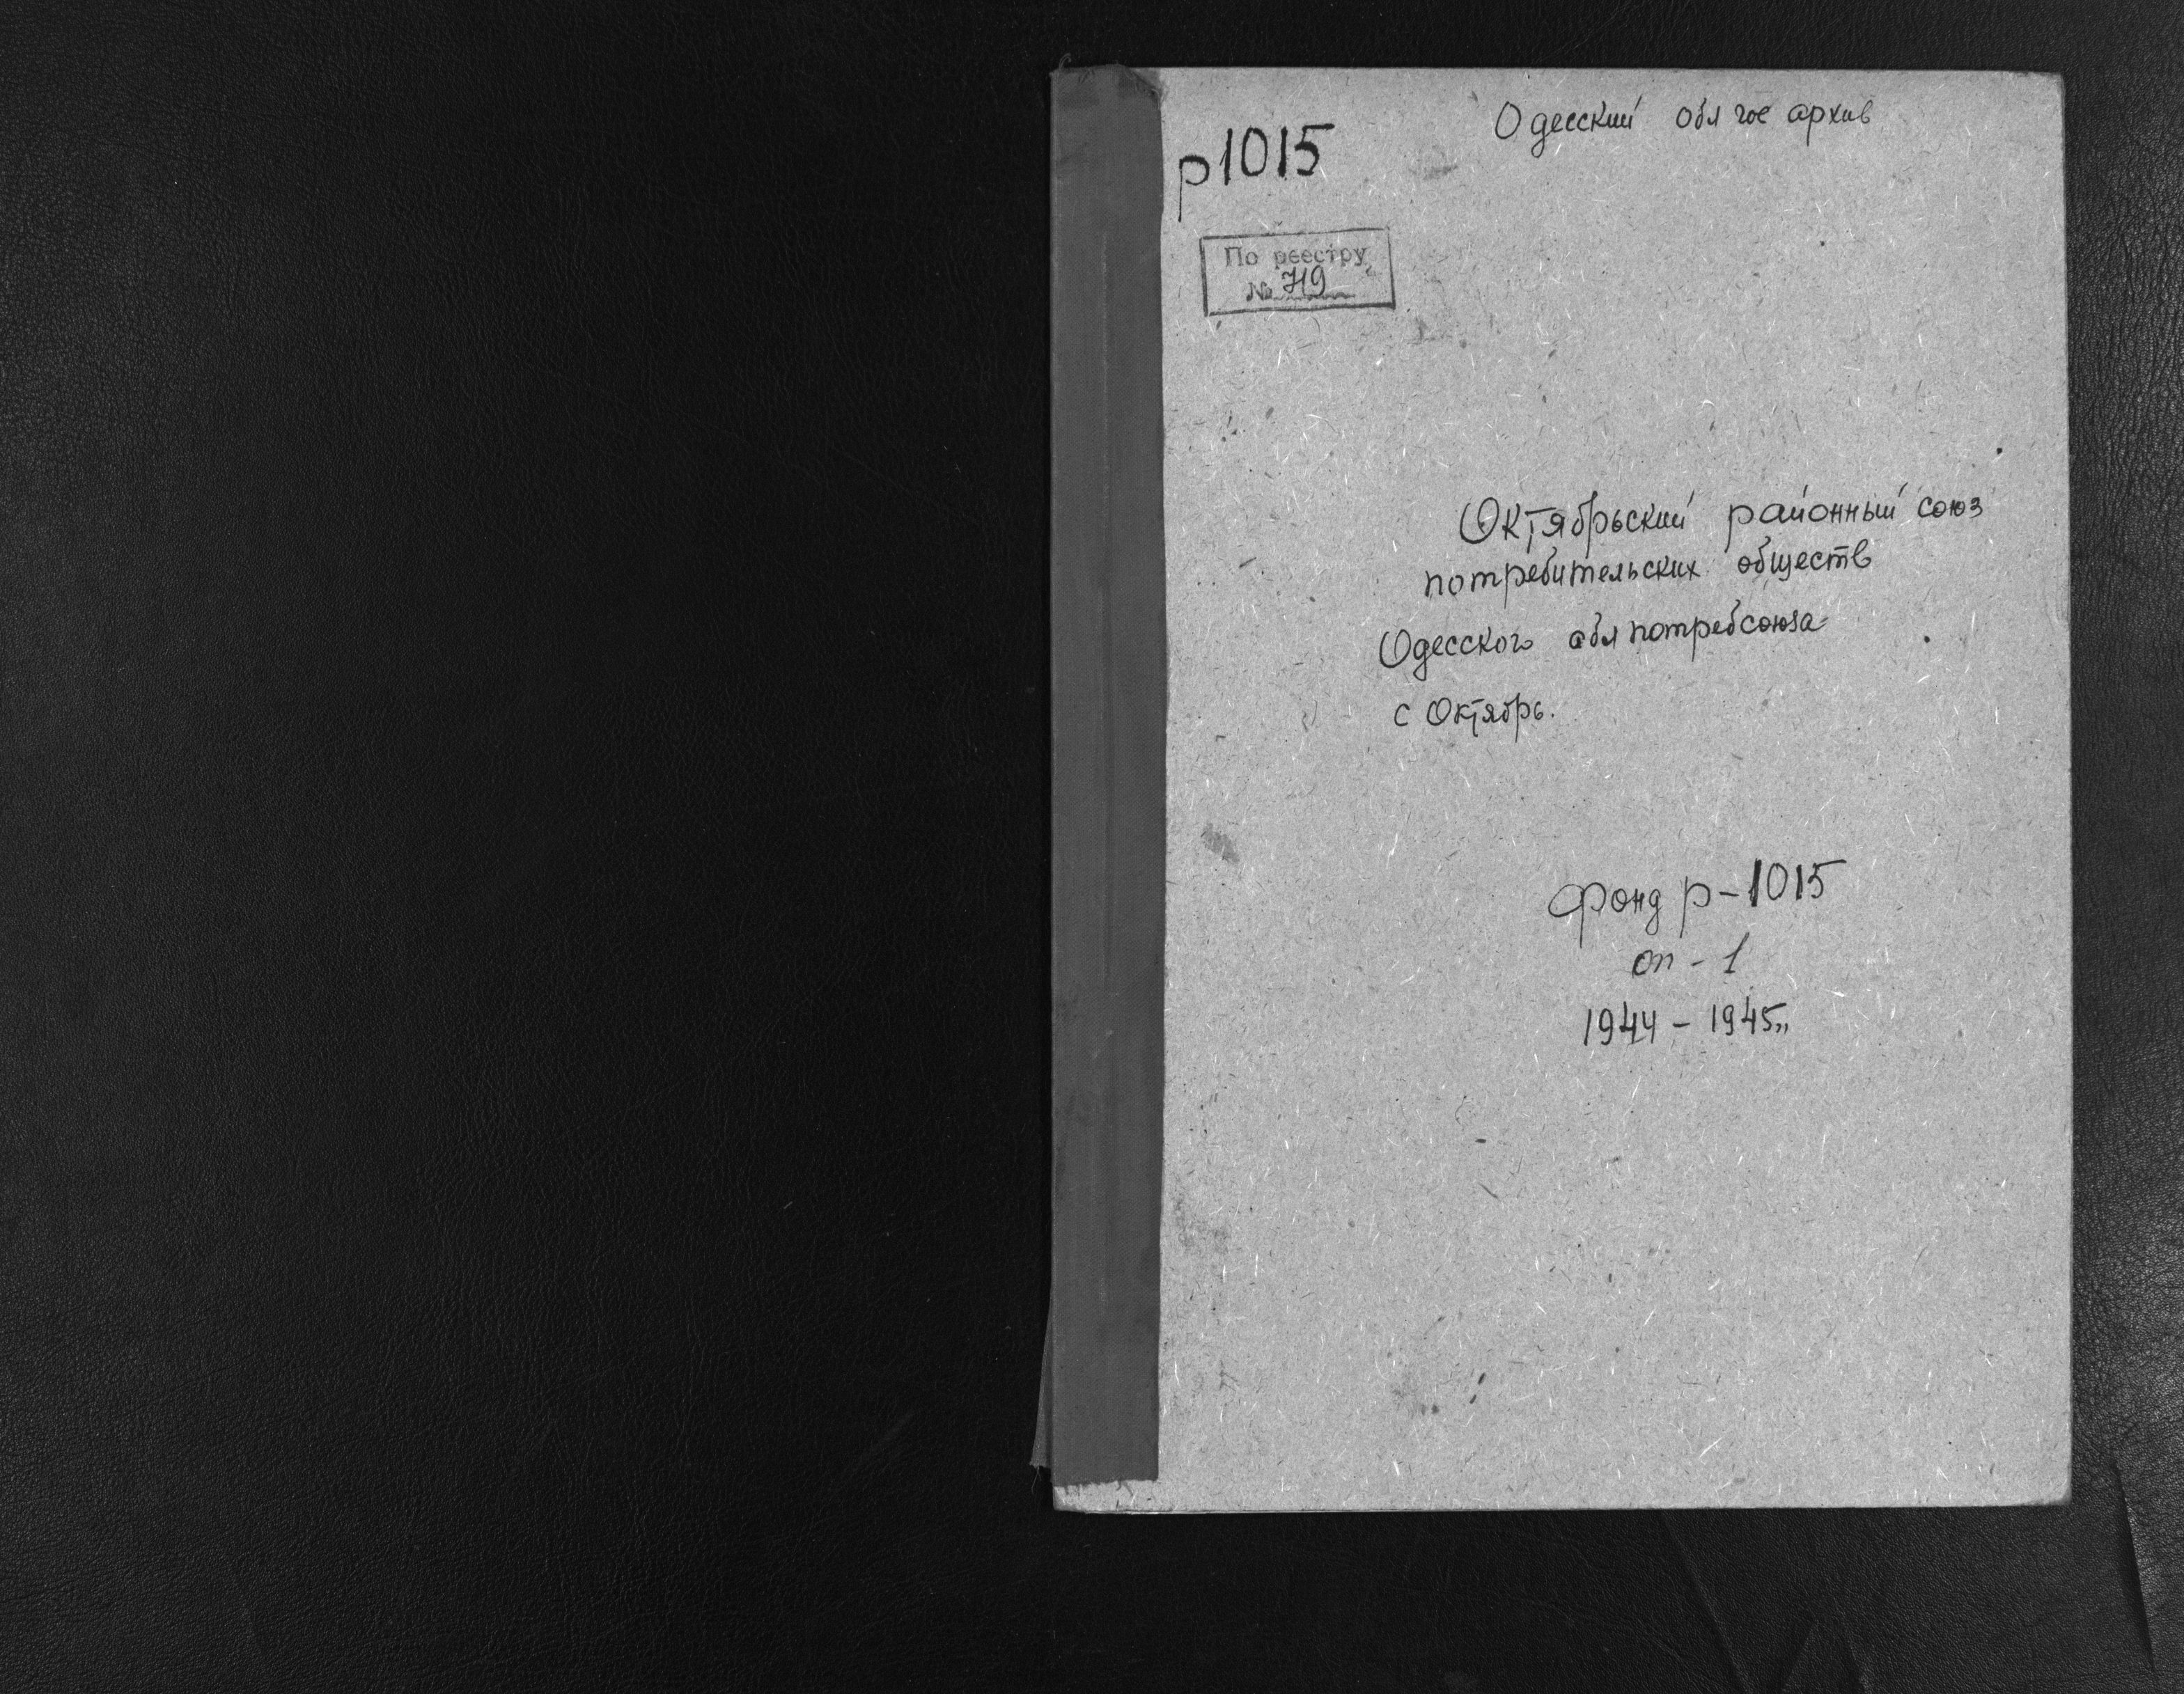 Одесский обл гос архив
р1015
По реестру
№ 719
Октябрьский районный союз
потребительских обществ
Одесского облпотребсоюза
с Октябрь.
Фонд р-1015
оп - 1
1944 - 1945